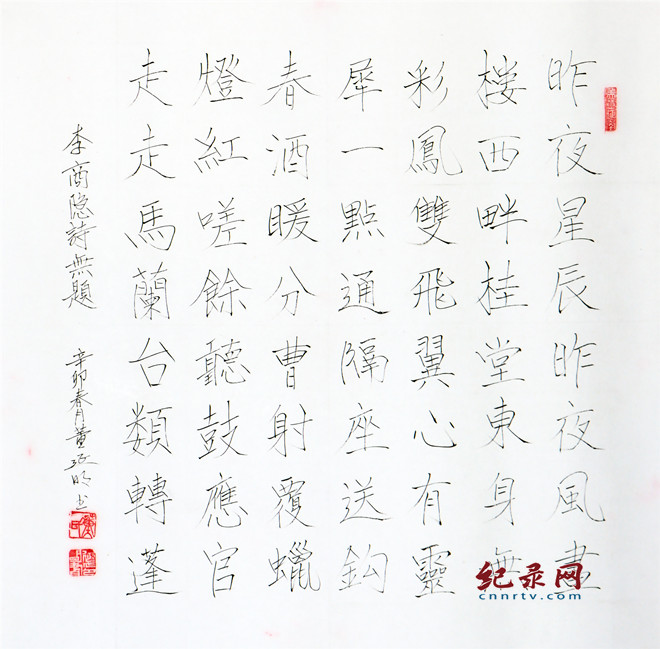 昨夜星辰昨夜風畫
樓西畔桂堂東身無
彩鳳雙飛翼心有靈
犀一點通隔座送鈎
春酒暖分曹射覆蠟
燈紅嗟餘聽鼓應官
走走馬蘭台類轉蓬
李商隐詩無題
辛卯春月董
纪录网
cnnrtv.com